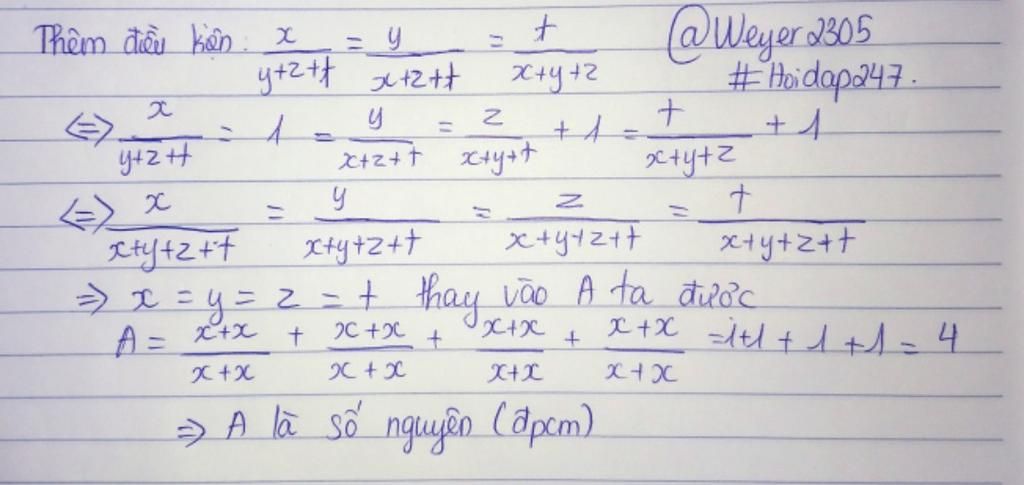 Thêm điều kiện: x/(y+z+t) = y/(x+z+t) = t/(x+y+z) @Weyer2305
#Hoidap247.
<=> x/(y+z+t) = 1 = y/(x+z+t) = z/(x+y+t) + 1 = t/(x+y+z) + 1
<=> x/(x+y+z+t) = y/(x+y+z+t) = z/(x+y+z+t) = t/(x+y+z+t)
=> x = y = z = t thay vào A ta được
A = (x+x)/(x+x) + (x+x)/(x+x) + (x+x)/(x+x) + (x+x)/(x+x) = 1+1+1+1 = 4
=> A là số nguyên (đpcm)